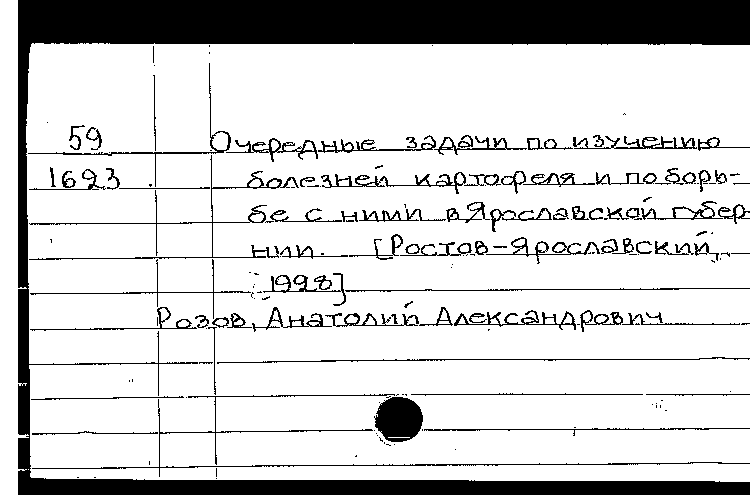 59
Очередные задачи по изучению
1623
болезней картофеля и по борь-
бе с ними в Ярославской губер-
нии. [Ростов-Ярославский,
1928]
Розов, Анатолий Александрович